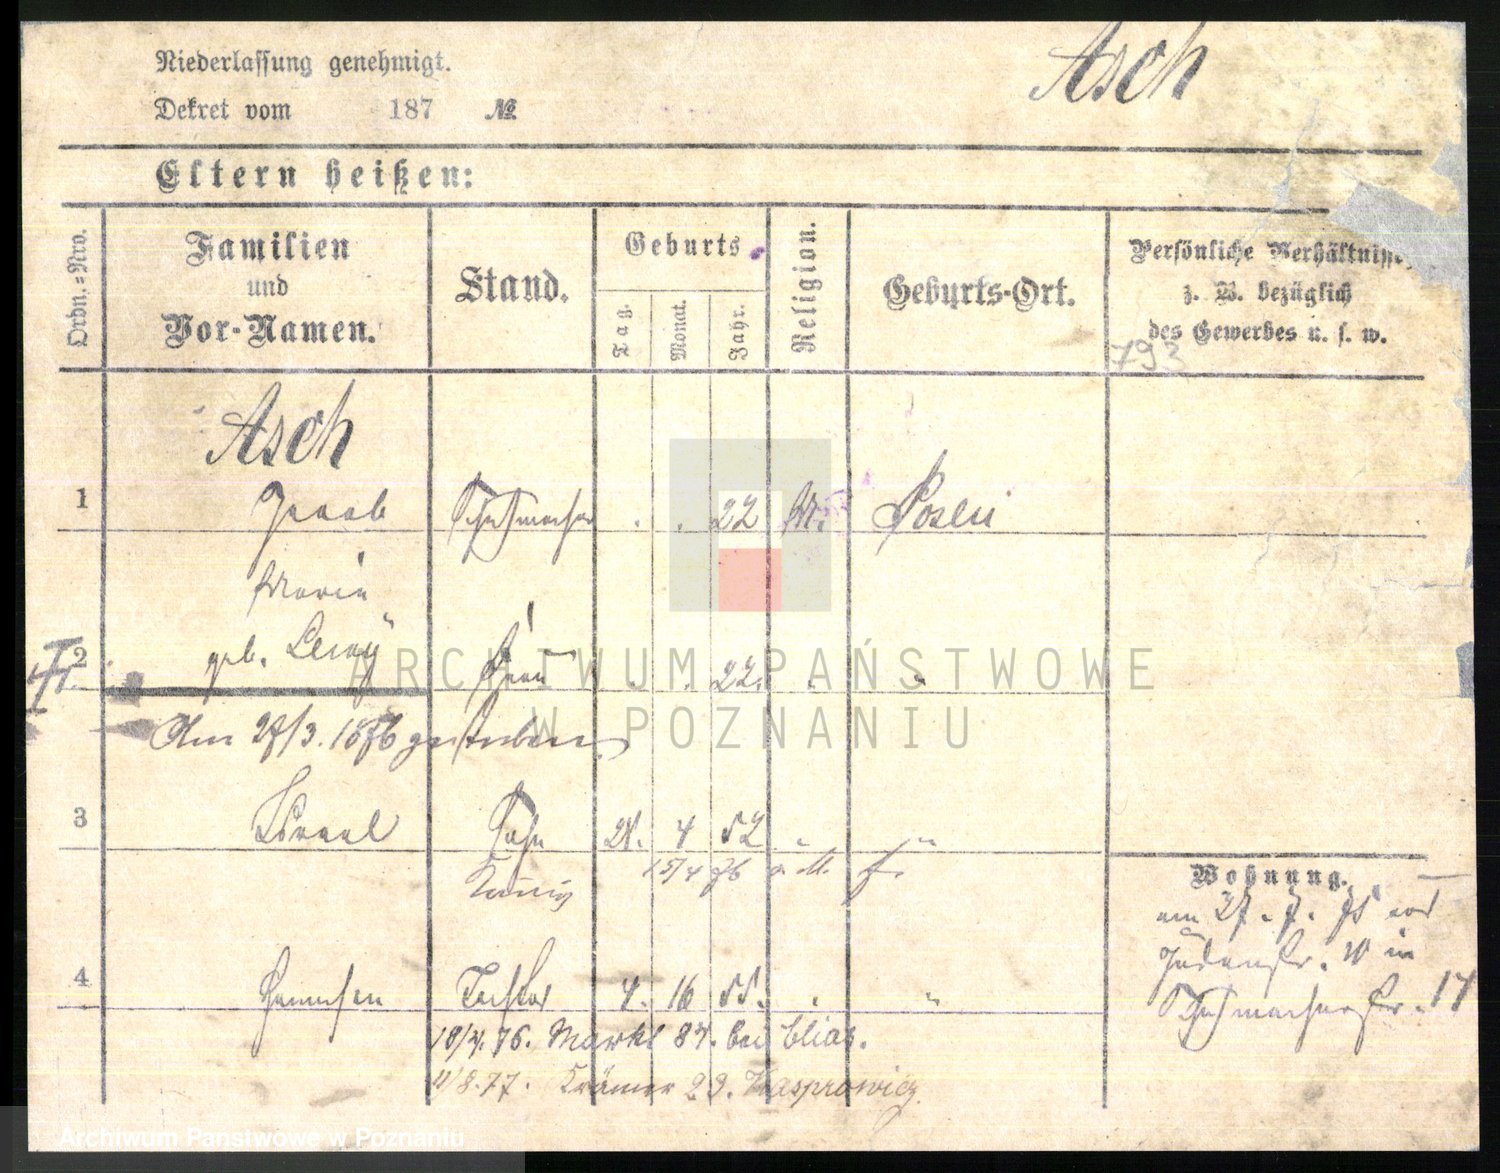 Niederlassung genehmigt.
Asch
Dekret vom 187 №
Eltern heißen:
Ordn.=Nro.
Familien und Vor-Namen.
Stand.
Geburts
Tag.
Monat.
Jahr.
Religion.
Geburts-Ort.
Persönliche Verhältnisse
z. B. bezüglich
des Gewerbes u. s. w.
793
Asch
1 Jacob Schuhmacher . . 22 M. Posen
Maria
2 geb. Levy Frau . . 22. " "
Am 27/3. 1876 gestorben
3 Israel Sohn 21. 4 52 " "
15/4 76
Wohnung.
am 27. 7. 75 von
Judenstr. in
4 Tochter 4. 16 55. " "
Schuhmacherstr. 17
18/4. 76. Markt 87. bei Elias.
11/8. 77. Krämer 23. Kasprowicz
ARCHIWUM PAŃSTWOWE
W POZNANIU
Archiwum Państwowe w Poznaniu